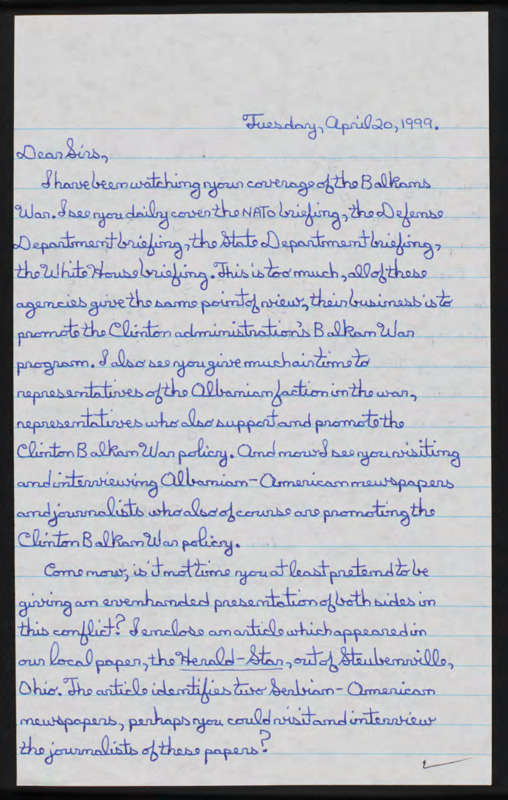 Tuesday, April 20, 1999.
Dear Sirs,
I have been watching your coverage of the Balkans
War. I see you daily cover the NATO briefing, the Defense
Department briefing, the State Department briefing,
the White House briefing. This is too much, all of these
agencies give the same point of view, their business is to
promote the Clinton administration's Balkan War
program. I also see you give much air time to
representatives of the Albanian faction in the war,
representatives who also support and promote the
Clinton Balkan War policy. And now I see you visiting
and interviewing Albanian-American newspapers
and journalists who also of course are promoting the
Clinton Balkan War policy.
Come now, is it not time you at least pretend to be
giving an evenhanded presentation of both sides in
this conflict? I enclose an article which appeared in
our local paper, the Herald-Star, out of Steubenville,
Ohio. The article identifies two Serbian-American
newspapers, perhaps you could visit and interview
the journalists of these papers?